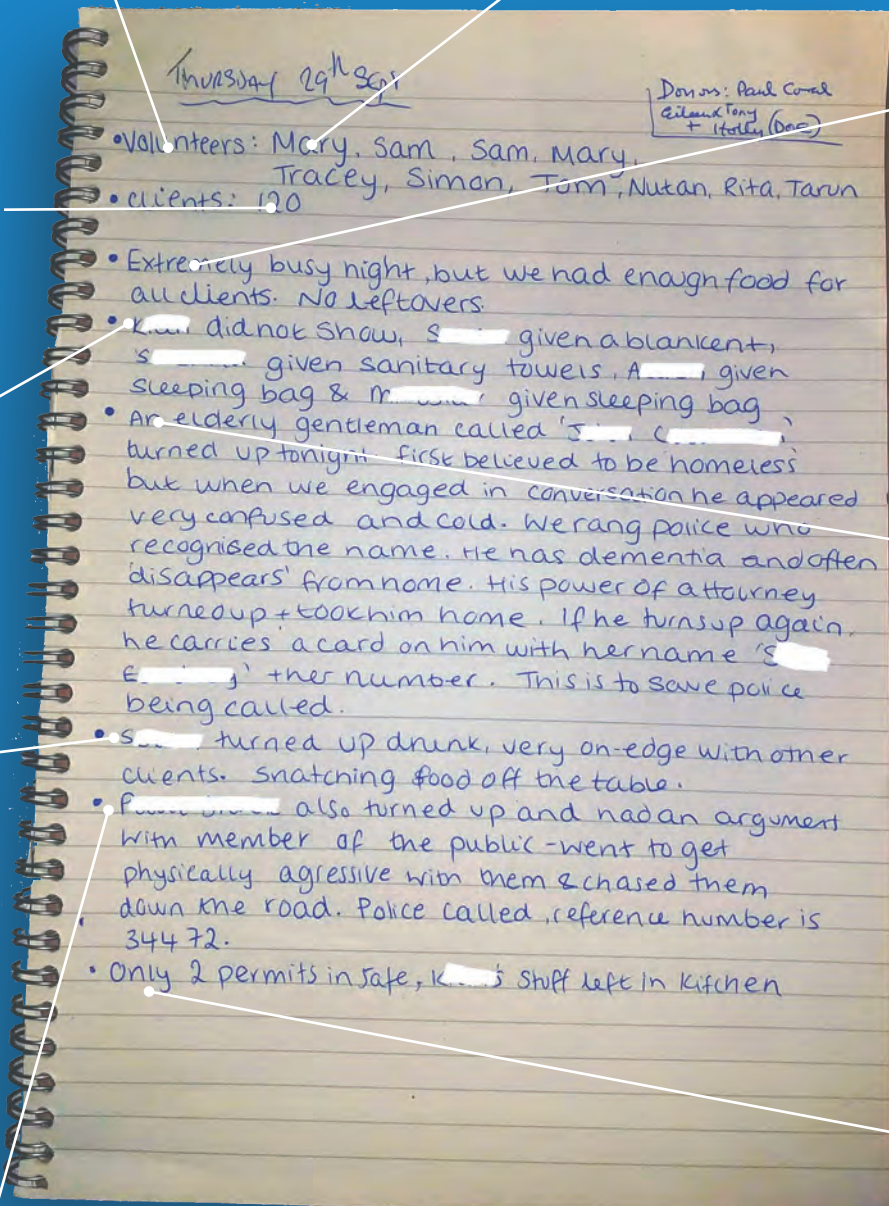 Thursday 29th Sept
Donors: Paul Coral
Eileen & Tony
+ Holly (Dog)
• Volunteers: Mary, Sam, Sam, Mary,
Tracey, Simon, Tom, Nutan, Rita, Tarun
• clients: 120
• Extremely busy night, but we had enough food for
all clients. No leftovers.
• K did not show, S given a blankent,
S given sanitary towels. A given
sleeping bag & M given sleeping bag
• An elderly gentleman called 'J C'
turned up tonight first believed to be homeless
but when we engaged in conversation he appeared
very confused and cold. We rang police who
recognised the name. He has dementia and often
'disappears' from home. His power of attourney
turned up + took him home. If he turns up again,
he carries a card on him with her name 'S
E' + her number. This is to save police
being called.
• S turned up drunk, very on-edge with other
clients. Snatching food off the table.
• P also turned up and had an argument
with member of the public - went to get
physically agressive with them & chased them
down the road. Police called, reference number is
34472.
• Only 2 permits in safe, K's stuff left in kitchen